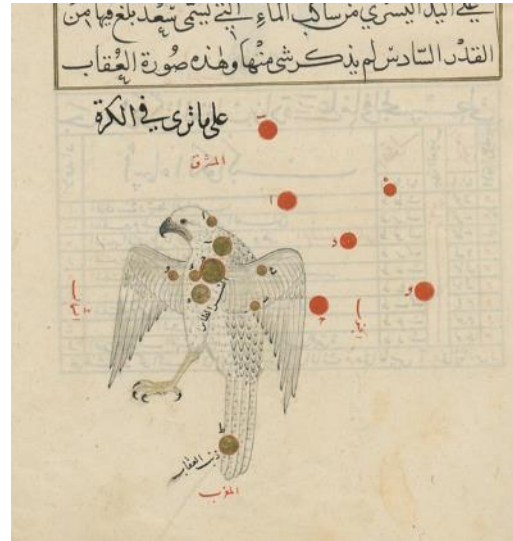 على اليد اليسرى من ساكب الماء التي تسمى سعد بلغ فيها من
القدر السادس لم يذكر شئ منها وهذه صورة العُقاب
على ما ترى في الكرة
المشرق
الجنوب
النسر الطاير
ذنب العقاب
المغرب